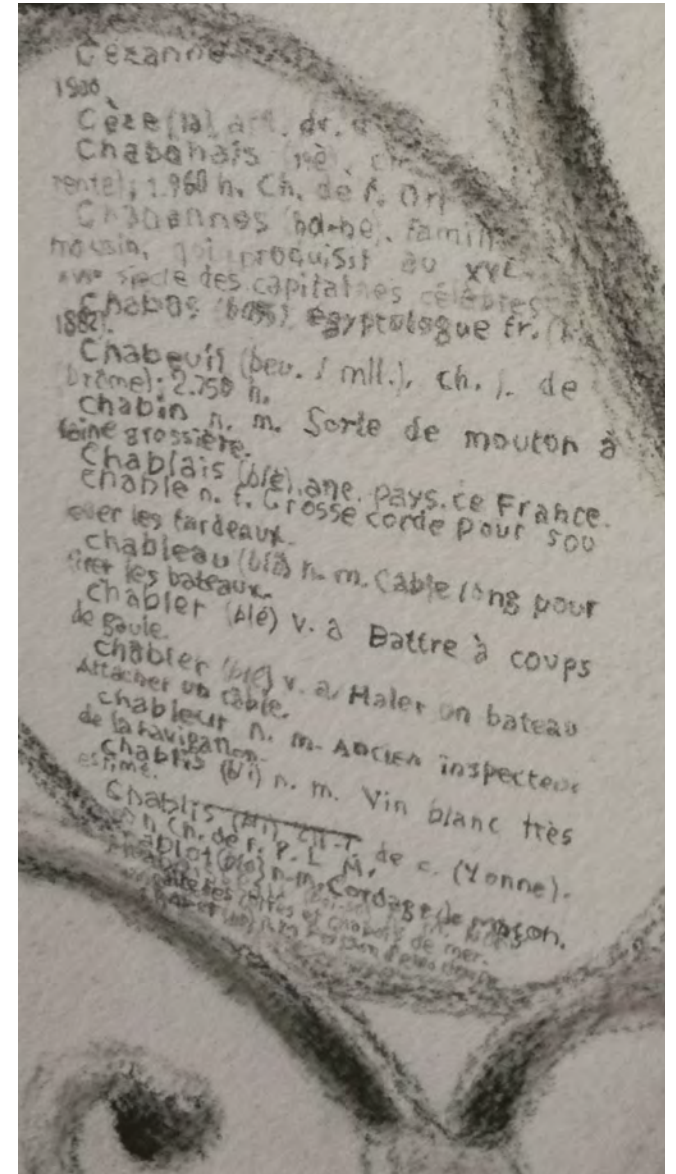 Cezanne
1900
Cèze (la), aff. dr.
Chabanais (nè), ch
rente); 1.960 h. Ch. de f. Orl
Chabannes (ba-ne). famill
mousin, qui produisit au XVe
siècle des capitaines célèbres
Chabas (bass) égyptologue fr.
1882).
Chabeuil (beu. l mll.), ch. l. de
(Drôme); 2.750 h.
chabin n. m. Sorte de mouton à
laine grossière.
Chablais (blè). anc. pays. ce France.
chable n. f. Grosse corde pour sou
lever les fardeaux.
chableau (blô) n. m. Câble long pour
tirer les bateaux.
chabler (blé) v. a Battre à coups
de gaule.
châbler (blé) v. a. Haler un bateau
Attacher un câble.
chableur n. m. Ancien inspecteur
de la navigation.
chablis (bli) n. m. Vin blanc très
estimé.
Chablis (bli), ch.-l. de c. (Yonne).
Ch. de f. P. L. M.
chablot (blo) n. m. Cordage de maçon.
de mer.